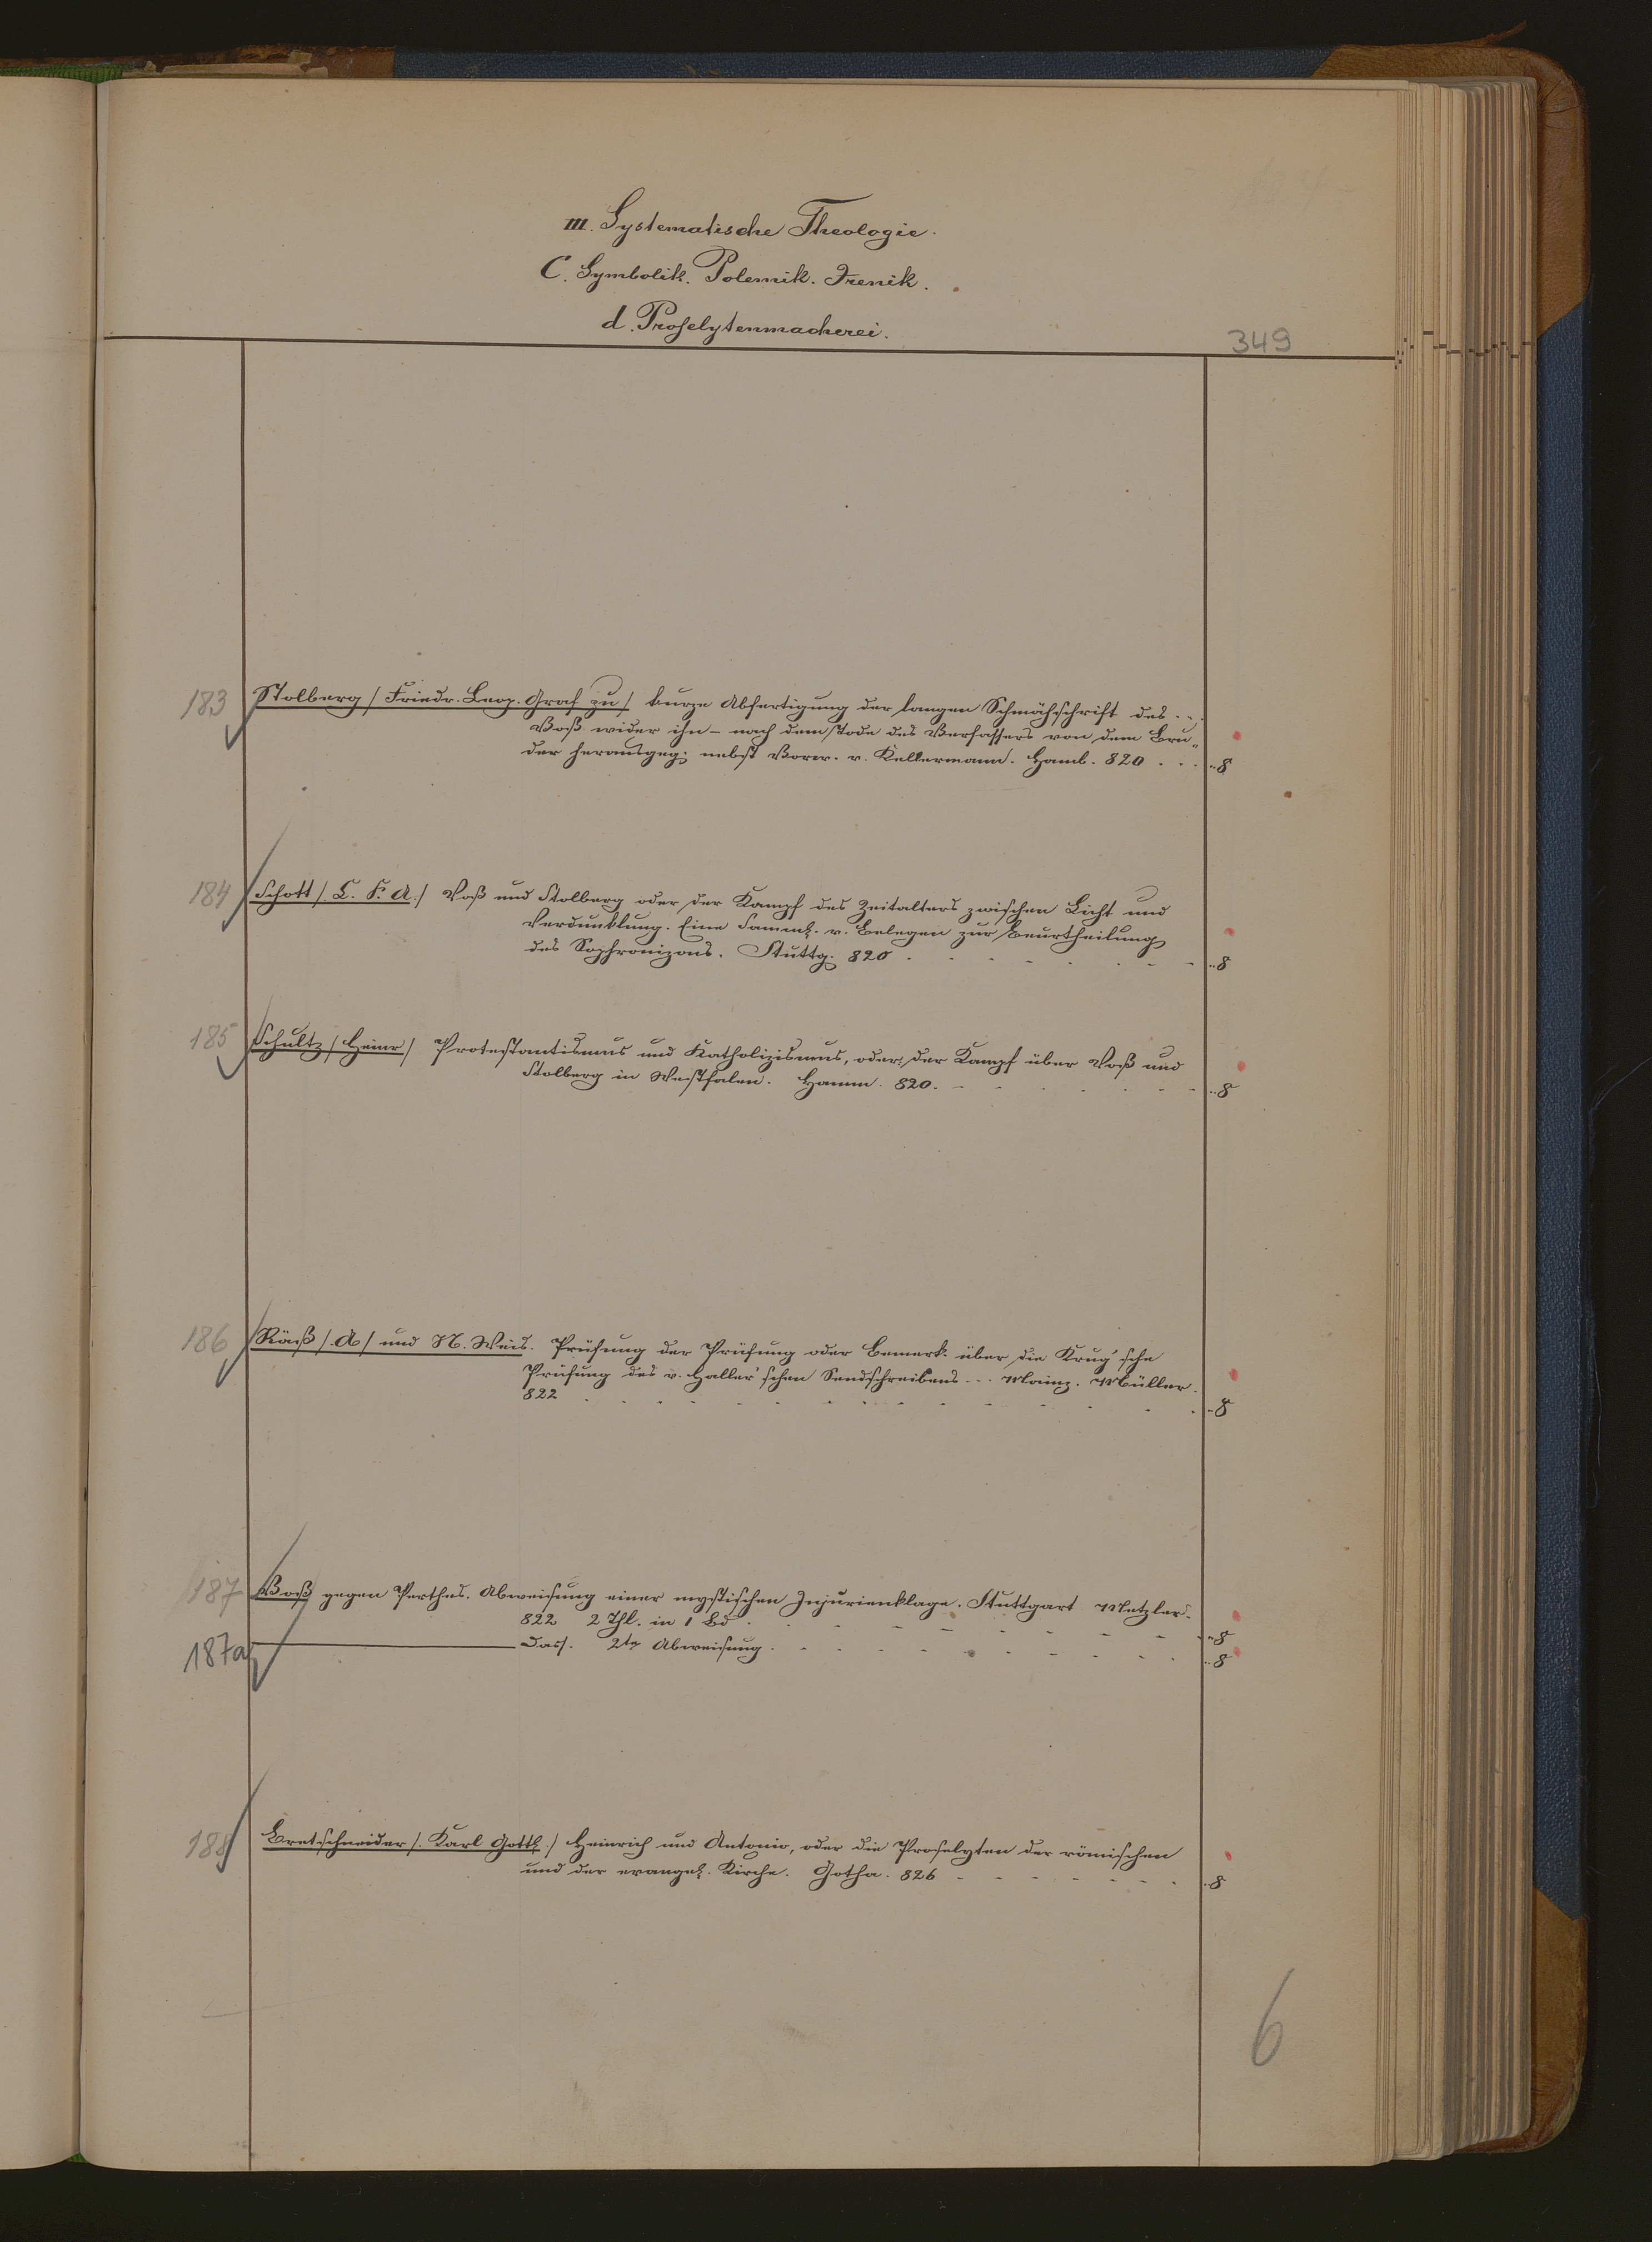 III. Systematische Theologie.
C. Symbolik. Polemik. Irenik.
d. Proselytenmacherei.
349
183 Stolberg /Friedr. Leop. Graf zu/ kurze Abfertigung der langen Schmähschrift des . . .
Voß wider ihn – nach dem Tode des Verfassers von dem Bru„
der herausgeg; nebst Vorw. v. Kellermann. Hamb. 820 . . . ..8
184 Schott /. C. F. A./ Voß und Stolberg oder der Kampf des Zeitalters zwischen Licht und
Verdunklung. Eine Samml. v. Belegen zur Beurtheilung
des Sophronizons. Stuttg. 820 . . . . . . . . ..8
185 Schultz /Heinr/ Protestantismus und Katholizismus, oder: der Kampf über Voß und
Stolberg in Westfalen. Hamm. 820. . . . . . . ..8
186 Räß /.A/ und N. Weis. Prüfung der Prüfung oder Bemerk. über die Krug'sche
Prüfung des v. Haller'schen Sendschreibens . . . Mainz. Müller.
822 . . . . . . . . . . . . ..8
187 Voß gegen Perthes. Abweisung einer mystischen Injurienklage. Stuttgart Metzler.
822 2 Thl. in 1 Bd . . . . . . . . ..8
187a Dass. 2te Abweisung . . . . . . . . ..8
188 Bretschneider /. Karl Gottl./ Heinrich und Antonio, oder die Proselyten der römischen
und der evangel. Kirche. Gotha. 826 . . . . . . . ..8
6